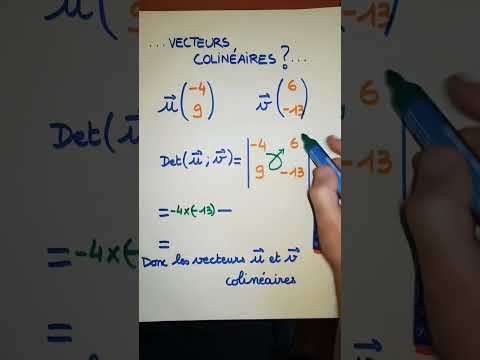 ...VECTEURS
COLINÉAIRES?...
u⃗(-4 9) v⃗(6 -13)
Det(u⃗;v⃗)=|-4 6
9 -13|
=-4x(-13)-
=
Donc les vecteurs u⃗ et v⃗
colinéaires